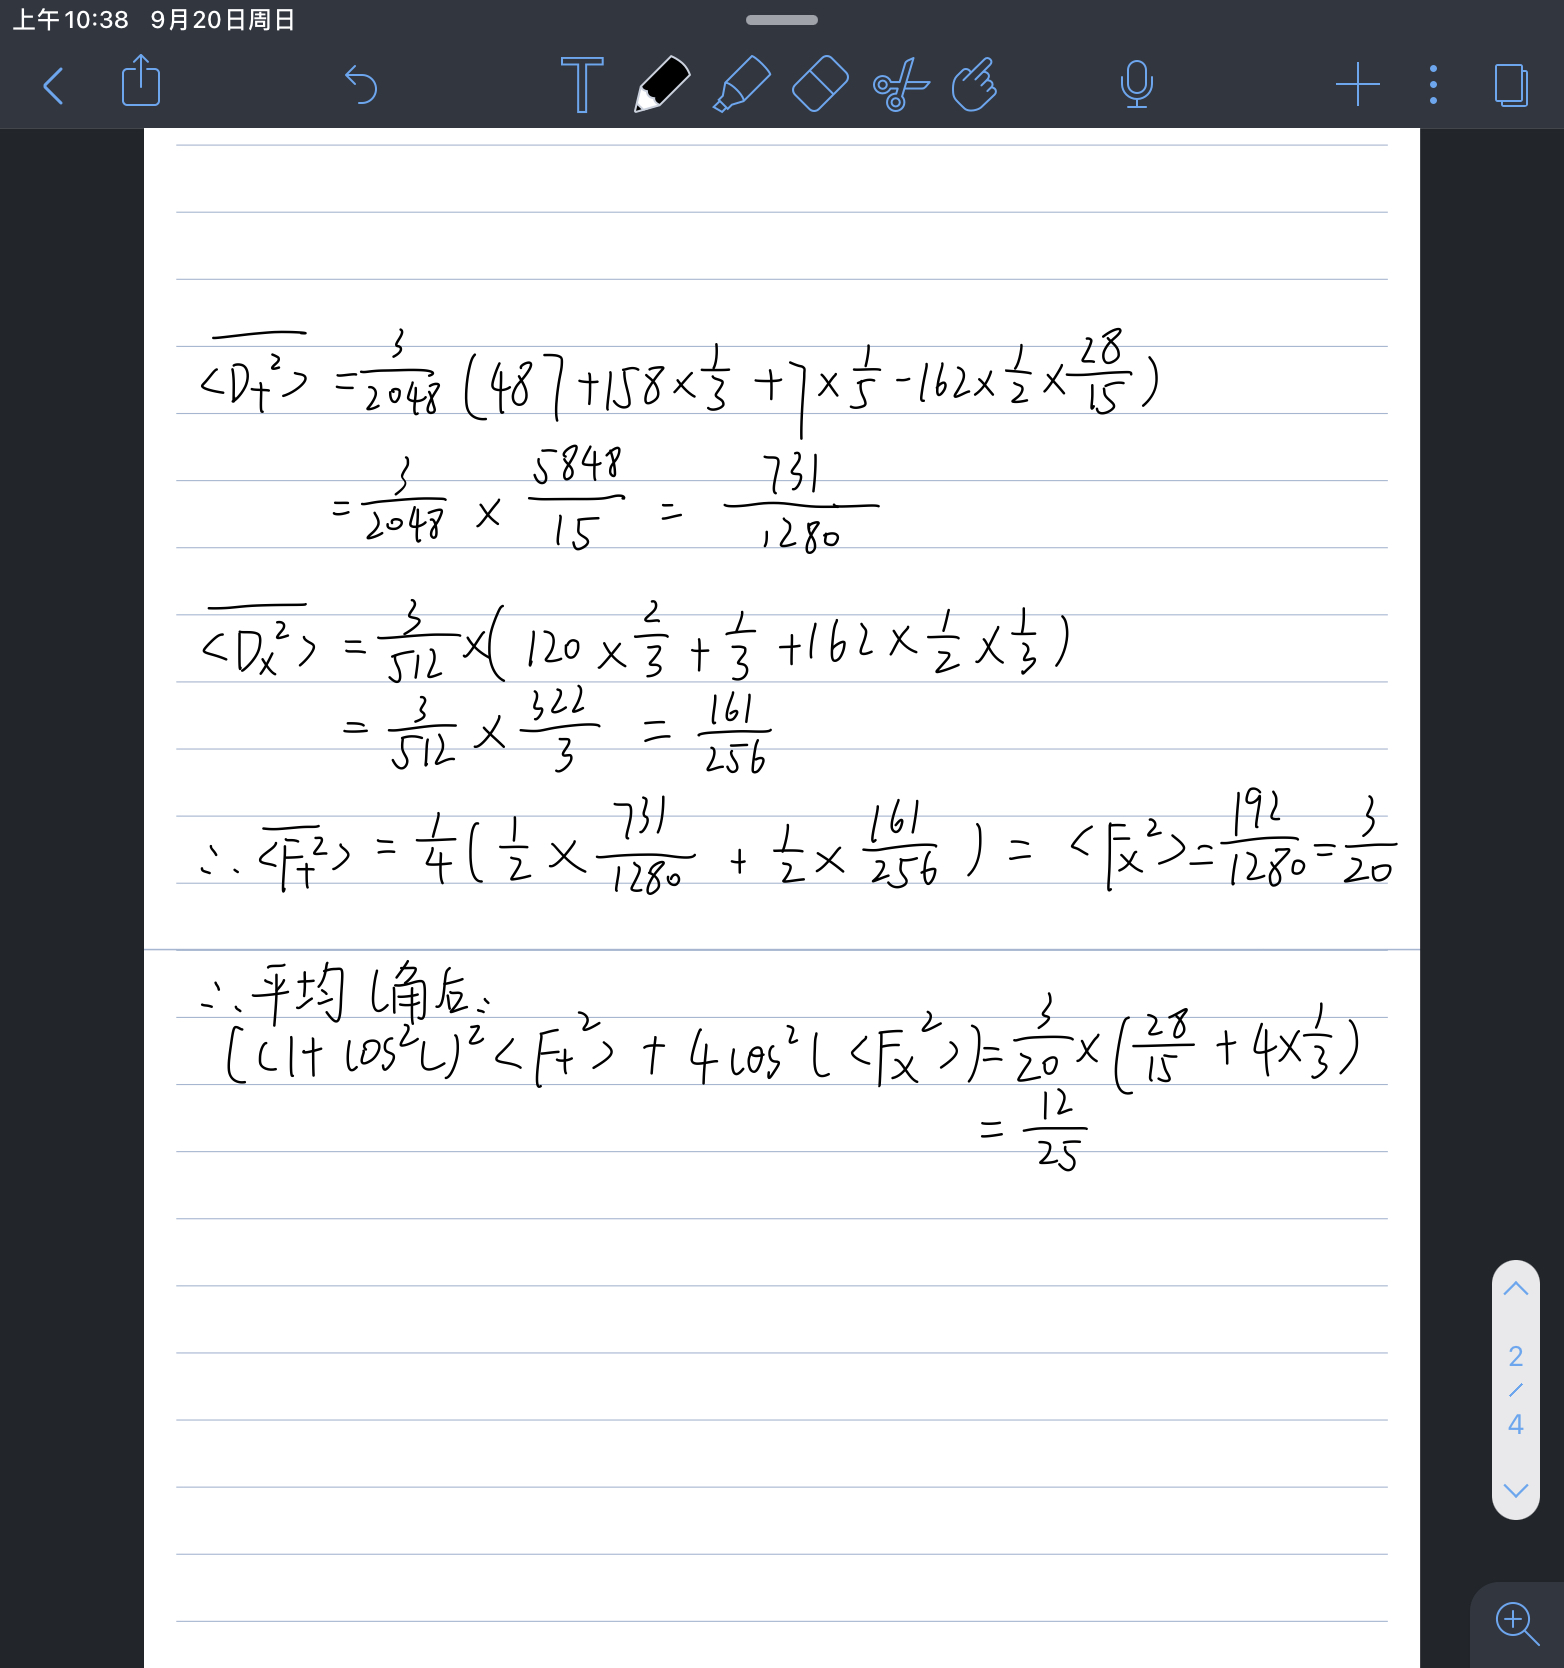 上午10:38 9月20日周日
T
<D+²> = 3/2048 (487 + 158 × 1/3 + 7 × 1/5 - 162 × 1/2 × 28/15)
= 3/2048 × 5848/15 = 731/1280
<Dx²> = 3/512 × (120 × 2/3 + 1/3 + 162 × 1/2 × 1/3)
= 3/512 × 322/3 = 161/256
∴ <F+²> = 1/4 (1/2 × 731/1280 + 1/2 × 161/256) = <Fx²> = 192/1280 = 3/20
∴ 平均 ι角后:
[(1+cos²ι)²<F+²> + 4cos²ι<Fx²>] = 3/20 × (28/15 + 4×1/3)
= 12/25
2
/
4